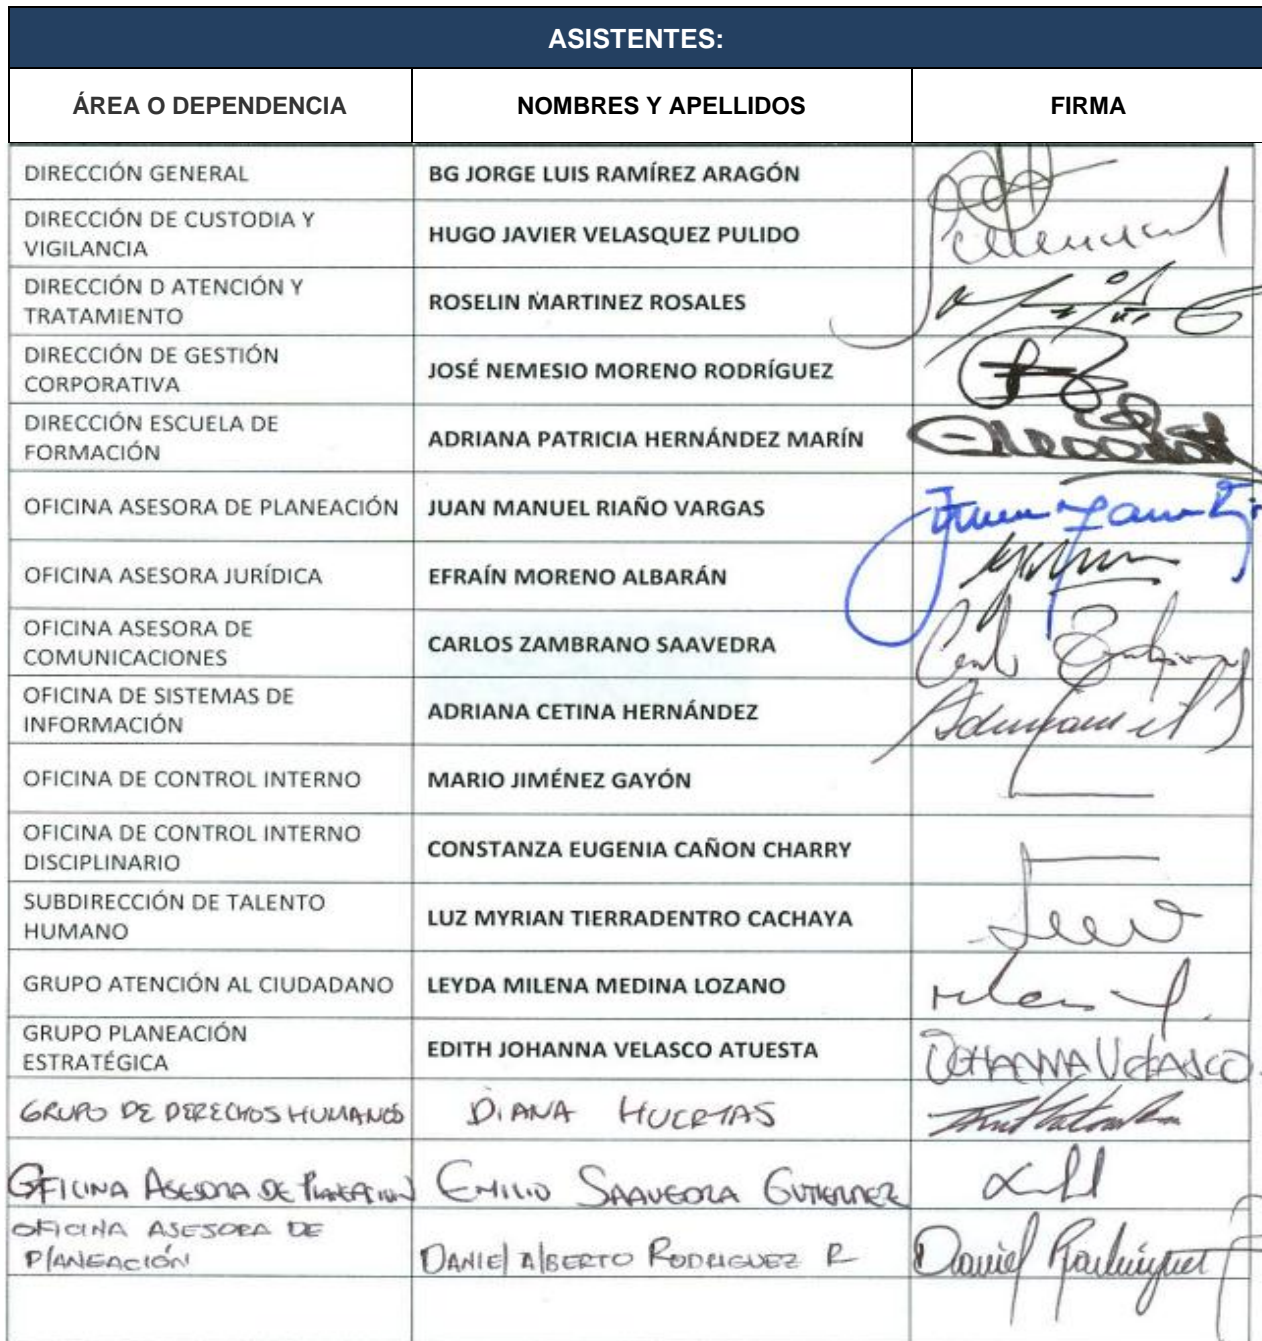 ASISTENTES:
ÁREA O DEPENDENCIA NOMBRES Y APELLIDOS FIRMA
DIRECCIÓN GENERAL BG JORGE LUIS RAMÍREZ ARAGÓN
DIRECCIÓN DE CUSTODIA Y
VIGILANCIA HUGO JAVIER VELASQUEZ PULIDO
DIRECCIÓN D ATENCIÓN Y
TRATAMIENTO ROSELIN MARTINEZ ROSALES
DIRECCIÓN DE GESTIÓN
CORPORATIVA JOSÉ NEMESIO MORENO RODRÍGUEZ
DIRECCIÓN ESCUELA DE
FORMACIÓN ADRIANA PATRICIA HERNÁNDEZ MARÍN
OFICINA ASESORA DE PLANEACIÓN JUAN MANUEL RIAÑO VARGAS
OFICINA ASESORA JURÍDICA EFRAÍN MORENO ALBARÁN
OFICINA ASESORA DE
COMUNICACIONES CARLOS ZAMBRANO SAAVEDRA
OFICINA DE SISTEMAS DE
INFORMACIÓN ADRIANA CETINA HERNÁNDEZ
OFICINA DE CONTROL INTERNO MARIO JIMÉNEZ GAYÓN
OFICINA DE CONTROL INTERNO
DISCIPLINARIO CONSTANZA EUGENIA CAÑON CHARRY
SUBDIRECCIÓN DE TALENTO
HUMANO LUZ MYRIAN TIERRADENTRO CACHAYA
GRUPO ATENCIÓN AL CIUDADANO LEYDA MILENA MEDINA LOZANO
GRUPO PLANEACIÓN
ESTRATÉGICA EDITH JOHANNA VELASCO ATUESTA JOHANNA VELASCO
GRUPO DE DERECHOS HUMANOS DIANA HUERTAS
OFICINA ASESORA DE PLANEACION EMILIO SAAVEDRA GUTIERREZ
OFICINA ASESORA DE
PLANEACIÓN DANIEL ALBERTO RODRIGUEZ R Daniel Rodriguez